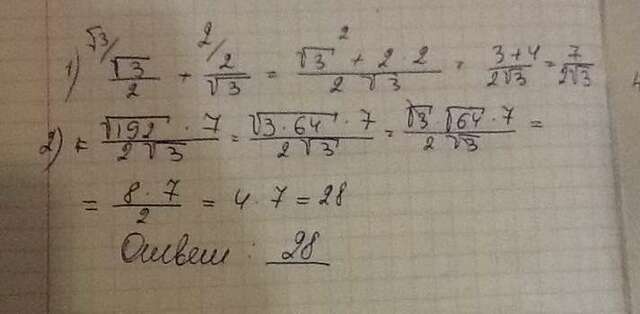 1) √3/ √3/2 + 2/ 2/√3 = (√3² + 2·2)/(2√3) = (3+4)/(2√3) = 7/(2√3)
2) (√192 · 7)/(2√3) = (√3·64 · 7)/(2√3) = (√3 √64 · 7)/(2√3) =
= (8·7)/2 = 4·7 = 28
Ответ: 28